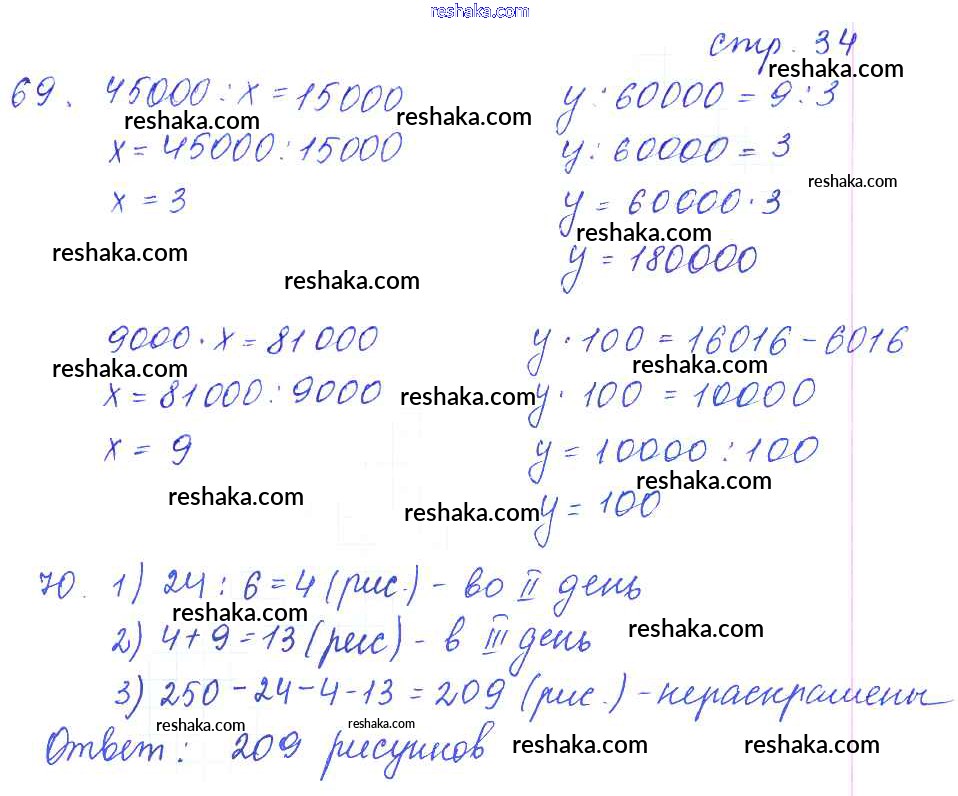 reshaka.com
стр. 34
reshaka.com
69. 45000 : x = 15000
y : 60000 = 9 : 3
reshaka.com
reshaka.com
x = 45000 : 15000
y : 60000 = 3
reshaka.com
x = 3
y = 60000 · 3
reshaka.com
reshaka.com
y = 180000
reshaka.com
9000 · x = 81000
y · 100 = 16016 - 6016
reshaka.com
reshaka.com
x = 81000 : 9000
reshaka.com
y · 100 = 10000
x = 9
y = 10000 : 100
reshaka.com
reshaka.com
reshaka.com
y = 100
70. 1) 24 : 6 = 4 (рис.) - во II день
reshaka.com
reshaka.com
2) 4 + 9 = 13 (рис) - в III день
3) 250 - 24 - 4 - 13 = 209 (рис.) - нераскрашены
reshaka.com
reshaka.com
Ответ: 209 рисунков
reshaka.com
reshaka.com